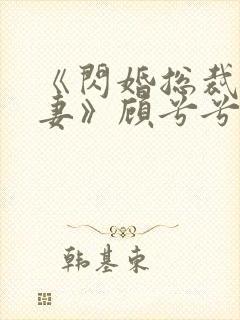 《閃婚总裁
妻》顾兮兮
韩基东